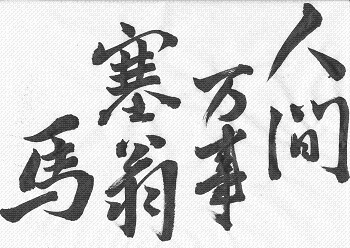 人間
万事
塞翁
馬